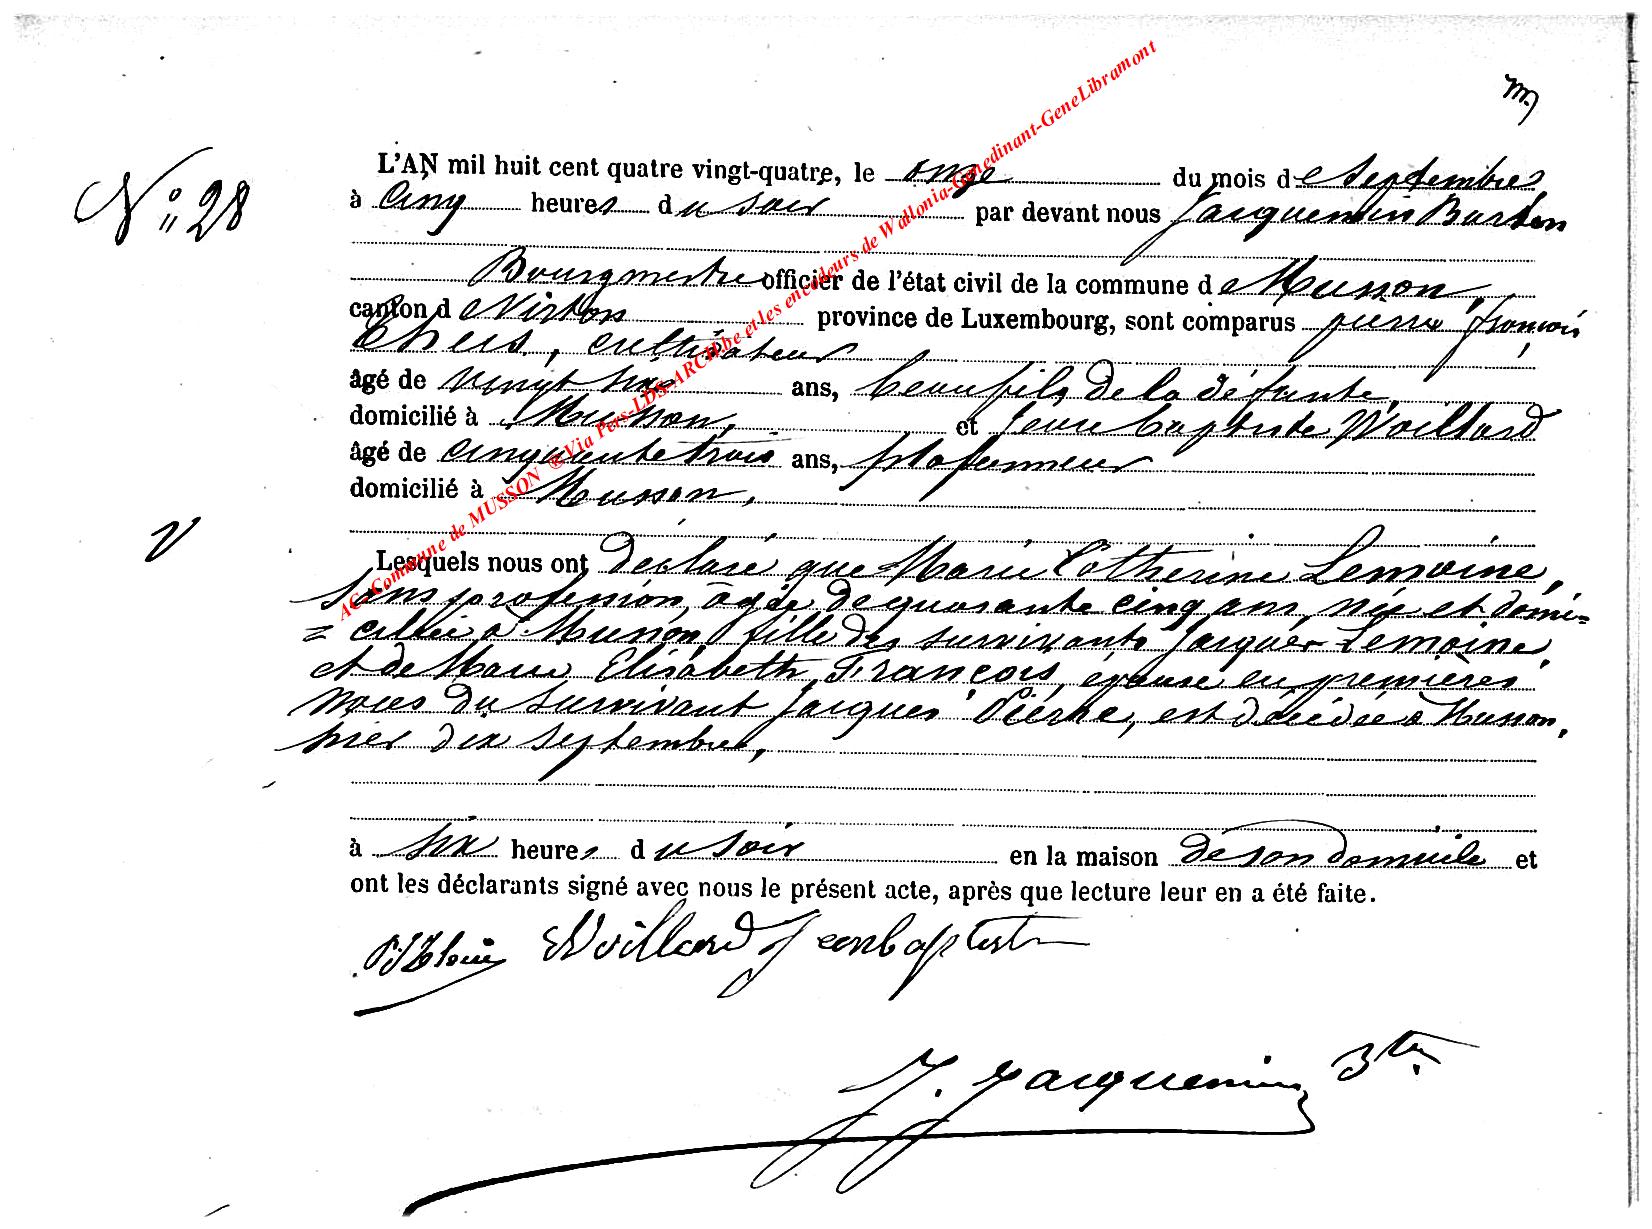 m
N° 28
L'AN mil huit cent quatre vingt-quatre, le onze du mois de Septembre,
à cinq heures du soir par devant nous Jacquemin
Bourgmestre officier de l'état civil de la commune de Musson,
canton de Virton province de Luxembourg, sont comparus pierre françois
, cultivateur
âgé de vingt six ans, beau fils de la défunte,
domicilié à Musson, et Jean baptiste Woillard
âgé de cinquante trois ans, plafonneur
domicilié à Musson,
V
Lesquels nous ont déclaré que Marie Catherine Lemoine,
sans profession, âgée de quarante cinq ans, née et domi=
=ciliée à Musson, fille des survivants Jacques Lemoine
et de Marie Elisabeth François, épouse en premières
noces du survivant Jacques Pierre, est décédée à Musson,
hier dix septembre,
à six heures du soir en la maison de son domicile et
ont les déclarants signé avec nous le présent acte, après que lecture leur en a été faite.
Woillard Jean baptiste
J. Jacquemin
AC-Commune de MUSSON ® Via Pers-LDS-ARCH.be et les encodeurs de Wallonia-Genedinant-GeneLibramont